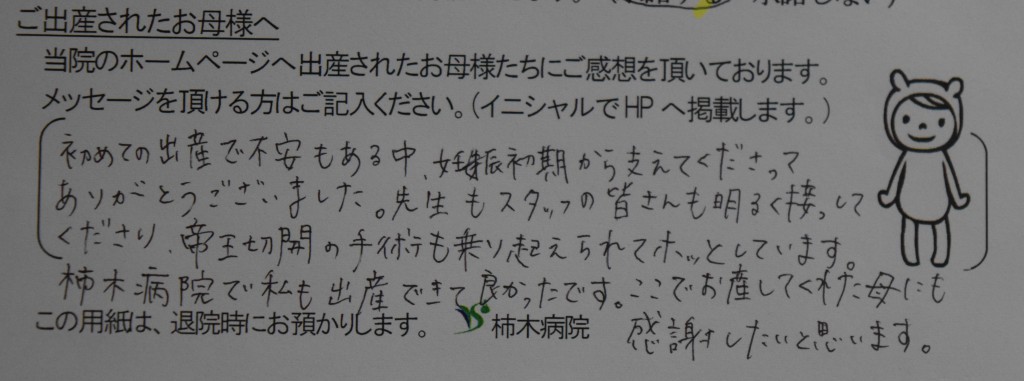 ご出産されたお母様へ
当院のホームページへ出産されたお母様たちにご感想を頂いております。
メッセージを頂ける方はご記入ください。(イニシャルでHPへ掲載します。)
初めての出産で不安もある中、妊娠初期から支えてくださって
ありがとうございました。先生もスタッフの皆さんも明るく接して
くださり、帝王切開の手術も乗り越えられてホッとしています。
柿木病院で私も出産できて良かったです。ここでお産してくれた母にも
感謝したいと思います。
この用紙は、退院時にお預かりします。 柿木病院